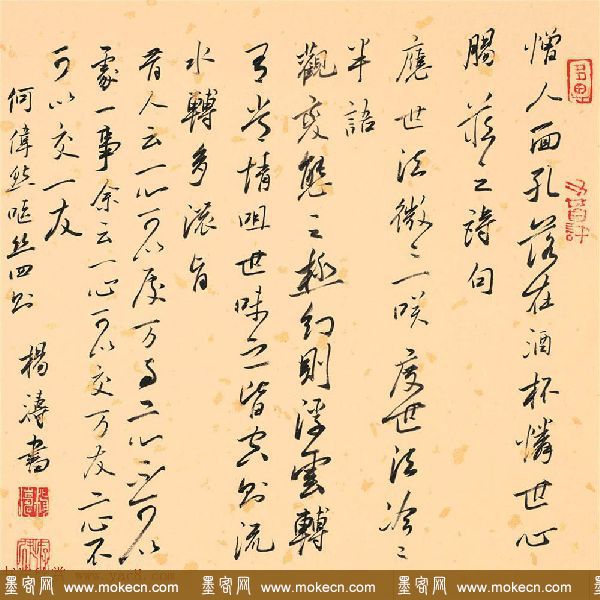 憎人面孔落在酒杯憐世心
腸藏之詩句
應世法微〻一咲度世法冷〻
半語
觀變態之極幻則浮雲轉
有常情咀世味之皆空則流
水轉多濃旨
昔人云一心可以處万事二心不可以
處一事余云一心可以交万友二心不
可以交一友
何偉然嘔絲四則
楊濤書
墨客网 www.mokecn.com 墨客网 www.mokecn.com 墨客网 www.mokecn.com